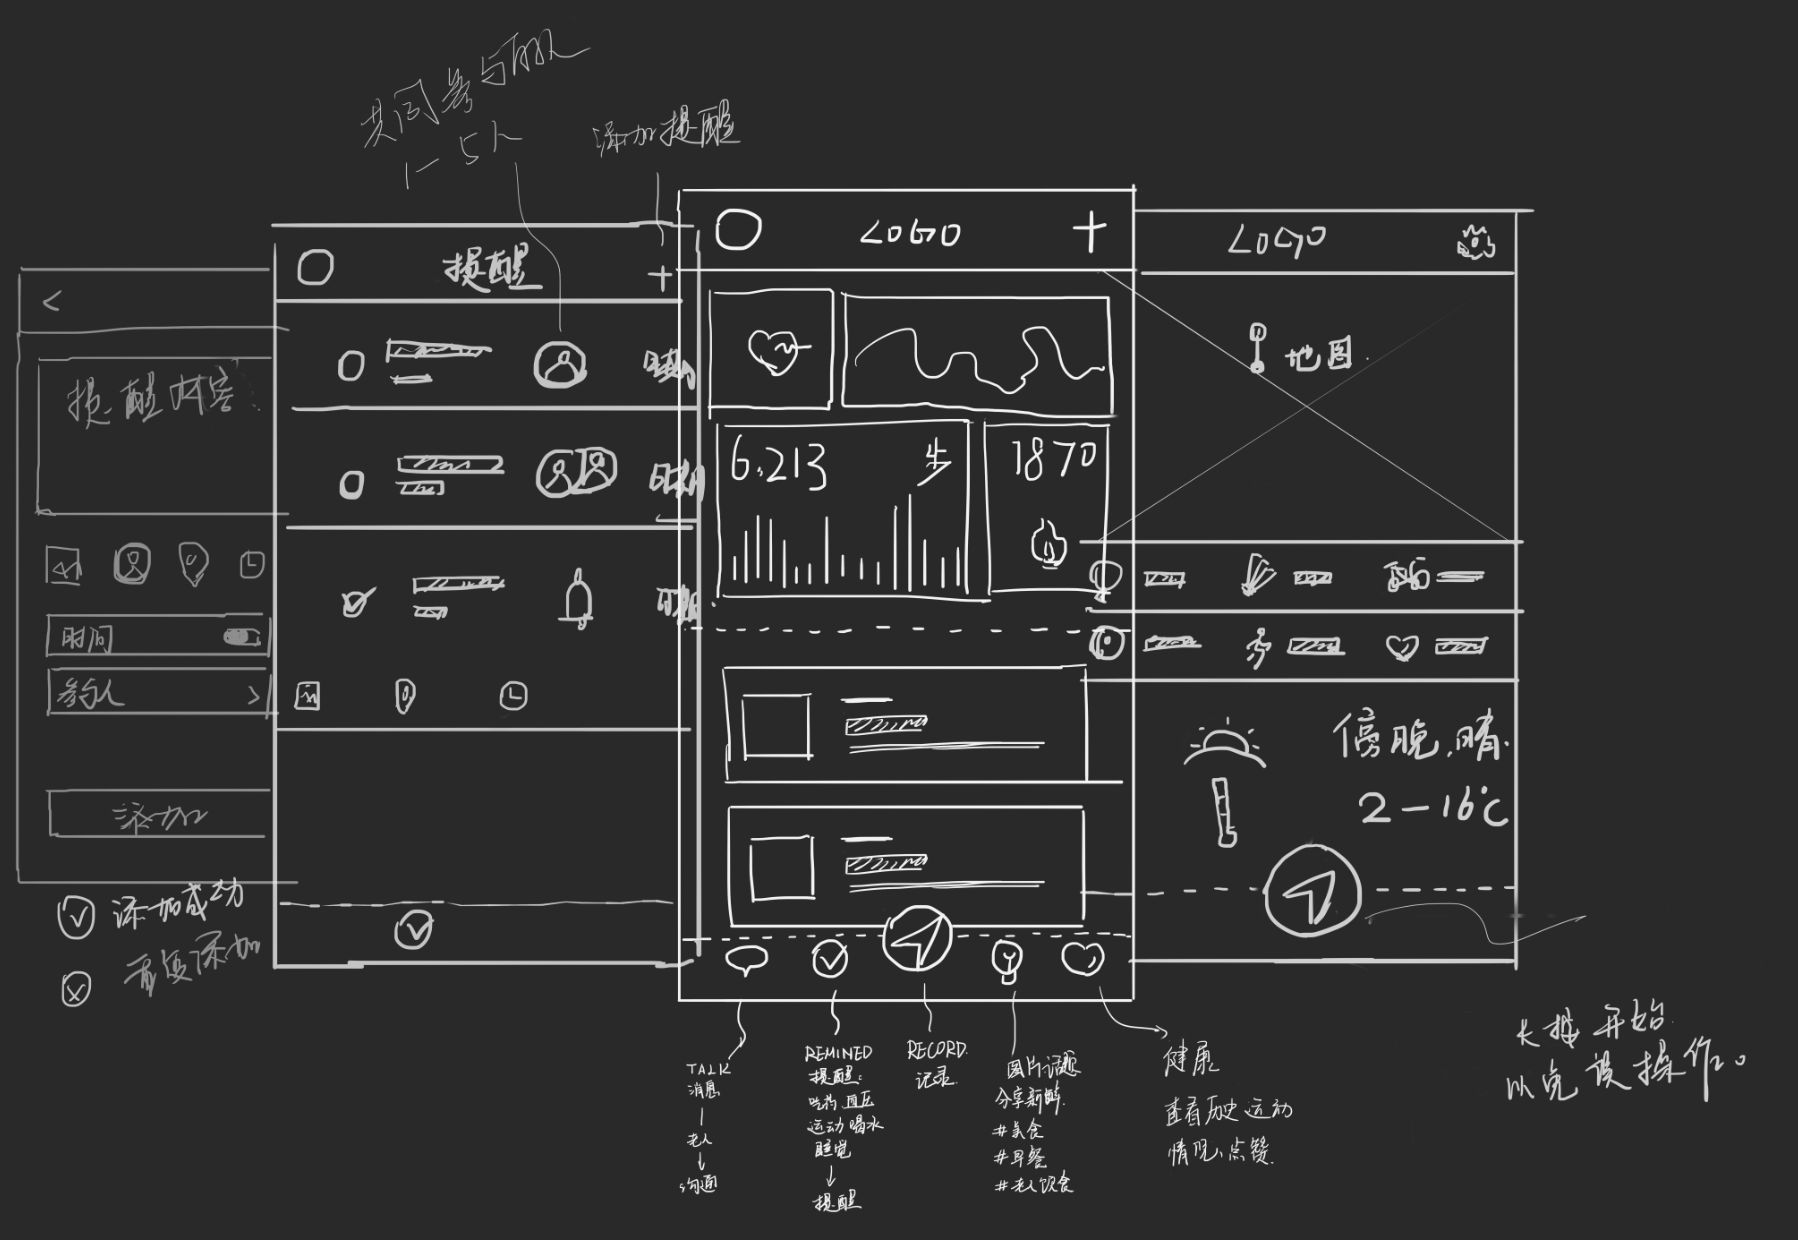 共同参与
1-5人
添加提醒
<
提醒内容
时间
参与人 >
添加
添加成功
重复添加
提醒 +
日期
日期
日期
LOGO +
6,213 步
1870
LOGO
地图
傍晚,晴.
2-16℃
TALK
消息
老人
沟通
REMINED
提醒:
吃药,血压
运动喝水
睡觉
提醒
RECORD.
记录.
图片话题
分享新鲜.
#美食
#早餐
#老人饮食
健康
查看历史运动
情况、点赞.
长按开始
操作。